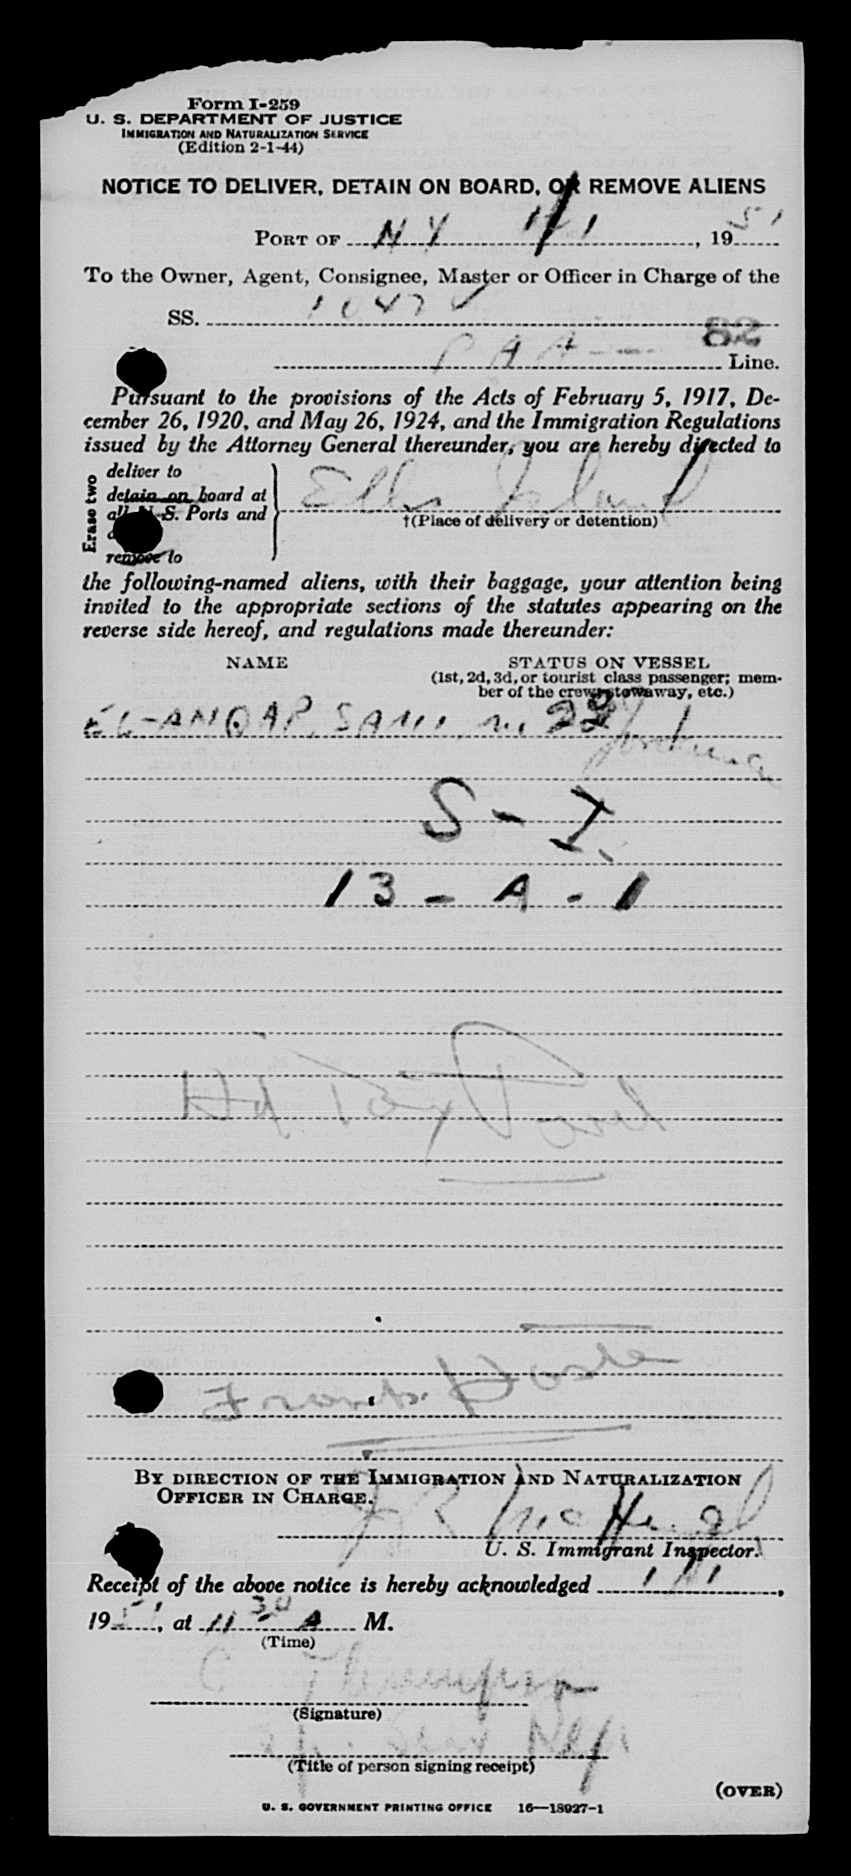 Form I-259
U. S. DEPARTMENT OF JUSTICE
IMMIGRATION AND NATURALIZATION SERVICE
(Edition 2-1-44)
NOTICE TO DELIVER, DETAIN ON BOARD, OR REMOVE ALIENS
PORT OF NY 1/1, 1951
To the Owner, Agent, Consignee, Master or Officer in Charge of the
SS.
82
PAA Line.
Pursuant to the provisions of the Acts of February 5, 1917, De-
cember 26, 1920, and May 26, 1924, and the Immigration Regulations
issued by the Attorney General thereunder, you are hereby directed to
Erase two
deliver to
detain on board at
all U. S. Ports and
remove to
Ellis Island
†(Place of delivery or detention)
the following-named aliens, with their baggage, your attention being
invited to the appropriate sections of the statutes appearing on the
reverse side hereof, and regulations made thereunder:
NAME STATUS ON VESSEL
(1st, 2d, 3d, or tourist class passenger; mem-
ber of the crew, stowaway, etc.)
SAMI m 22
S - I
13 - A - 1
BY DIRECTION OF THE IMMIGRATION AND NATURALIZATION
OFFICER IN CHARGE.
U. S. Immigrant Inspector.
Receipt of the above notice is hereby acknowledged 1/1,
1951, at 11 30 A M.
(Time)
C Thompson
(Signature)
(Title of person signing receipt)
(OVER)
U. S. GOVERNMENT PRINTING OFFICE 16—18927-1